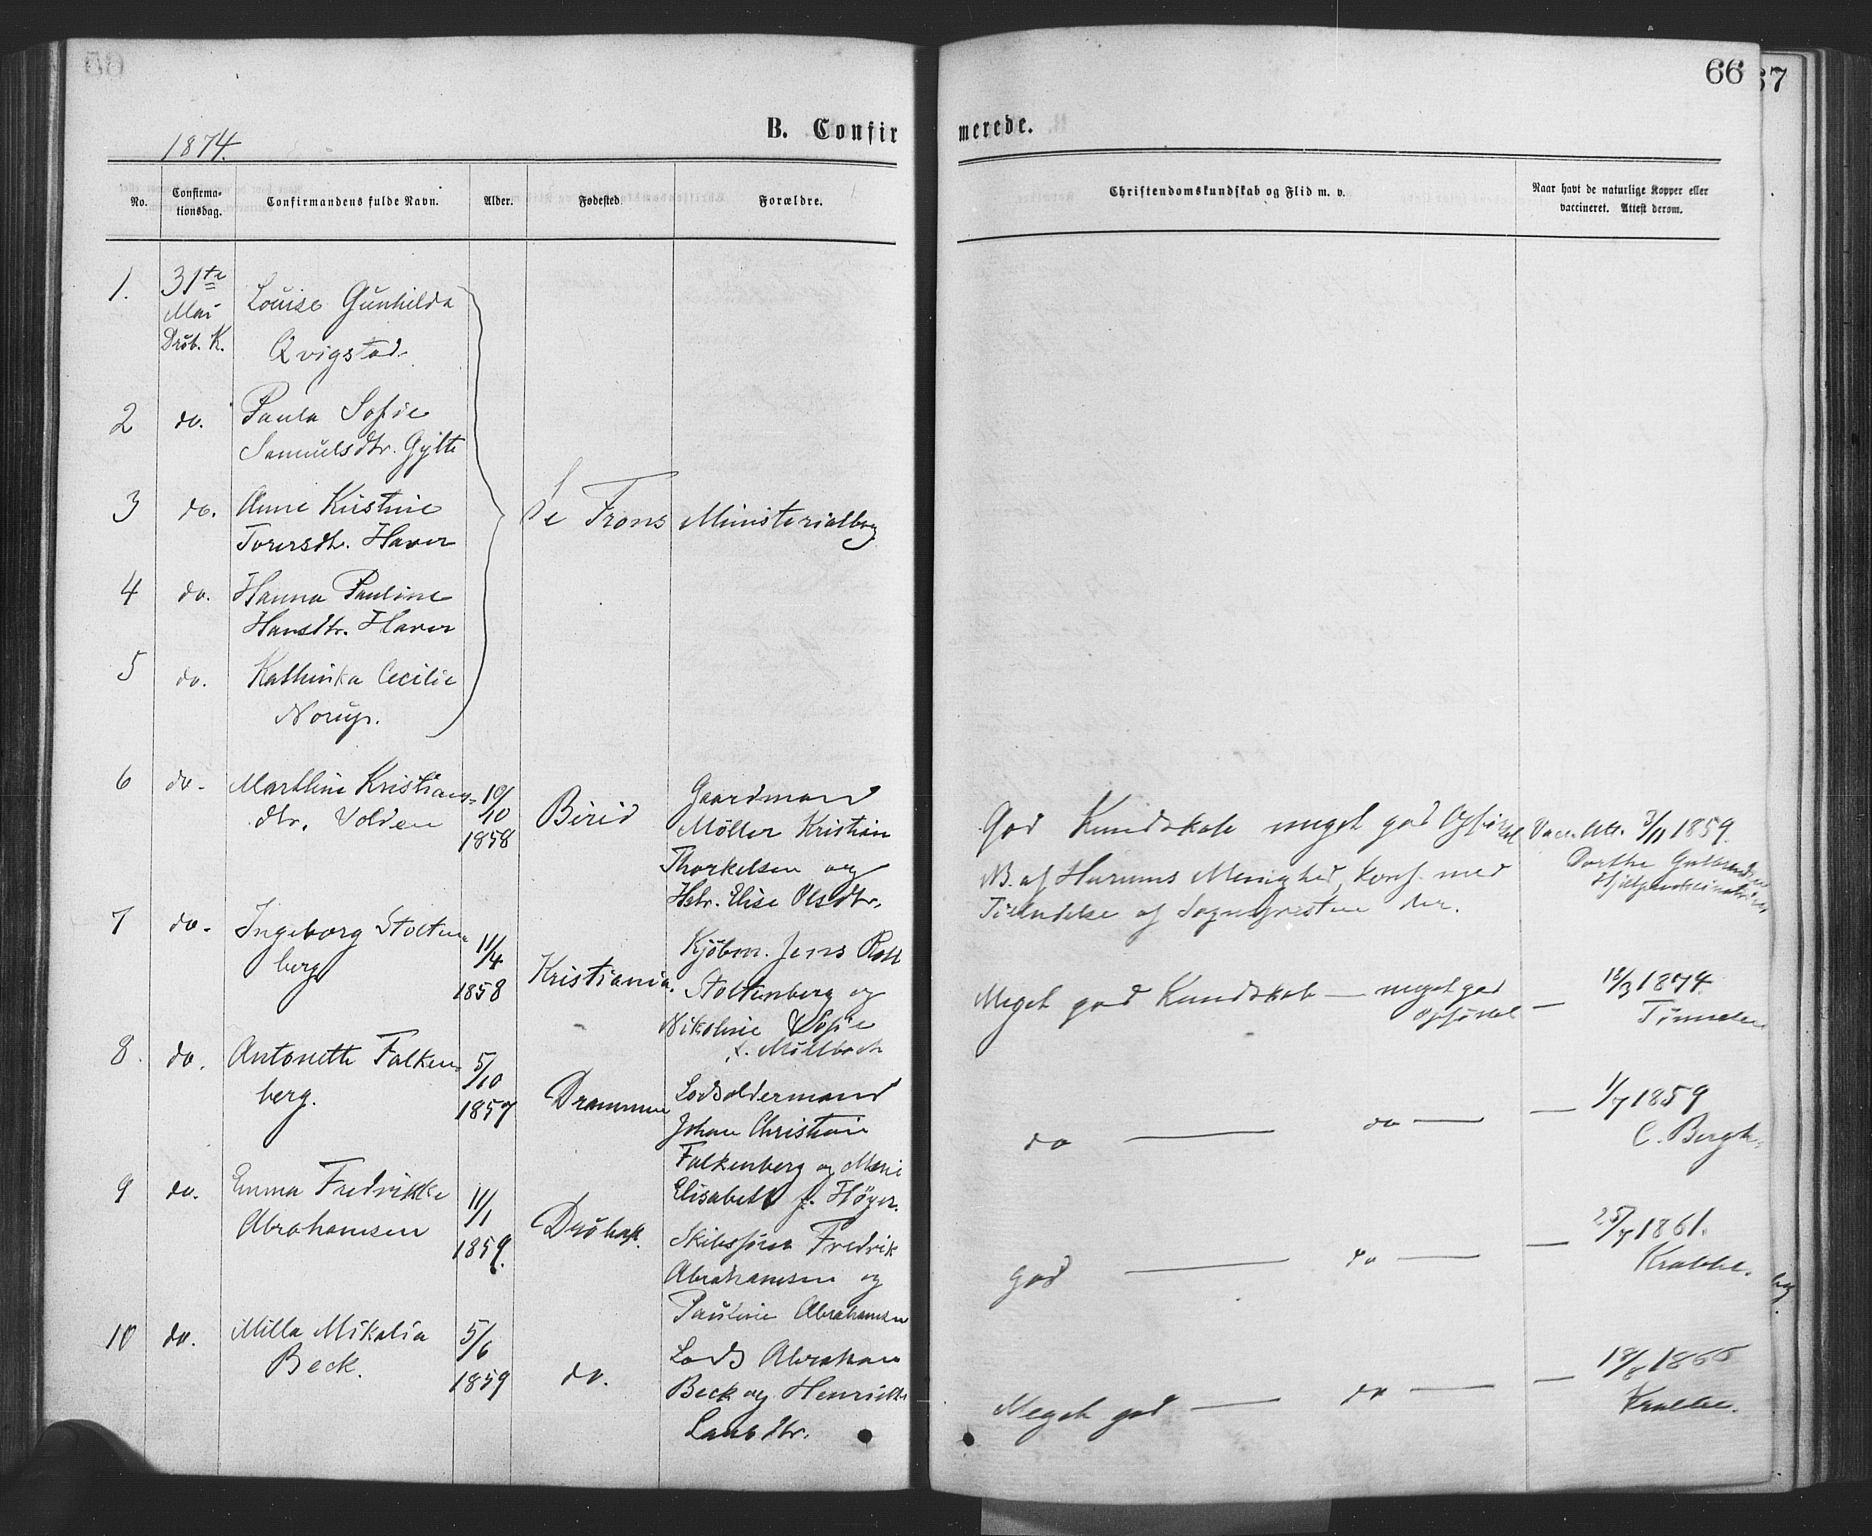 66
67
1874.
B. Confir
merede.
No.
Confirma-
tionsdag.
Confirmandens fulde Navn.
Alder.
Fødested
Forældre.
Christendomskundskab og Flid m. v.
Naar havt de naturlige Kopper eller
vaccineret. Attest derom.
1.
31te
Mai
Drøb. K.
Louise Gunhilda
Qvigstad.
2
do.
Paula Sofie
Samuelsdtr. Gylte
3
do.
Anne Kristine
Torersdtr. Haver
Se Frons Ministerialbog
4
do.
Hanna Pauline
Hansdtr. Haver
5
do.
Kathinka Cecilie
Norup.
6
do.
Marthine Kristians-
dtr. Volden
10/10
1858
Birid
Gaardmand
Møller Kristian
Thorkelsen og
Hstr. Elise Olsdtr.
God Kundskab meget god Opførsel
NB. af Hurums Menighed, konf. med
Tilladelse af Sognepresten der.
Vacc. Att. 3/11 1859.
Dorthe
7
do.
Ingeborg Stolten-
berg
11/4
1858
Kristiania.
Kjøbm. Jens
Stoltenberg og
Nikoline Sofie
f. Møllbach
Meget god Kundskab — meget god
Opførsel
— 18/3 1874.
8.
do.
Antonette Falken-
berg.
5/10
1857
Drammen
Lodsoldermand
Johan Christian
Falkenberg og Marie
Elisabeth f. Høyer.
do — do —
— 1/7 1859
C. Bergh.
9
do.
Emma Fredrikke
Abrahamsen
11/1
1859.
Drøbak.
Skibsfører Fredrik
Abrahamsen og
Pauline Abrahamsen
god — do —
— 25/7 1861.
Krabbe.
10
do.
Milla Mikalia
Beck.
5/6
1859
do.
Lods Abraham
Beck og Henrikke
Larsdtr.
Meget god — do —
— 18/6 1866
Krabbe.